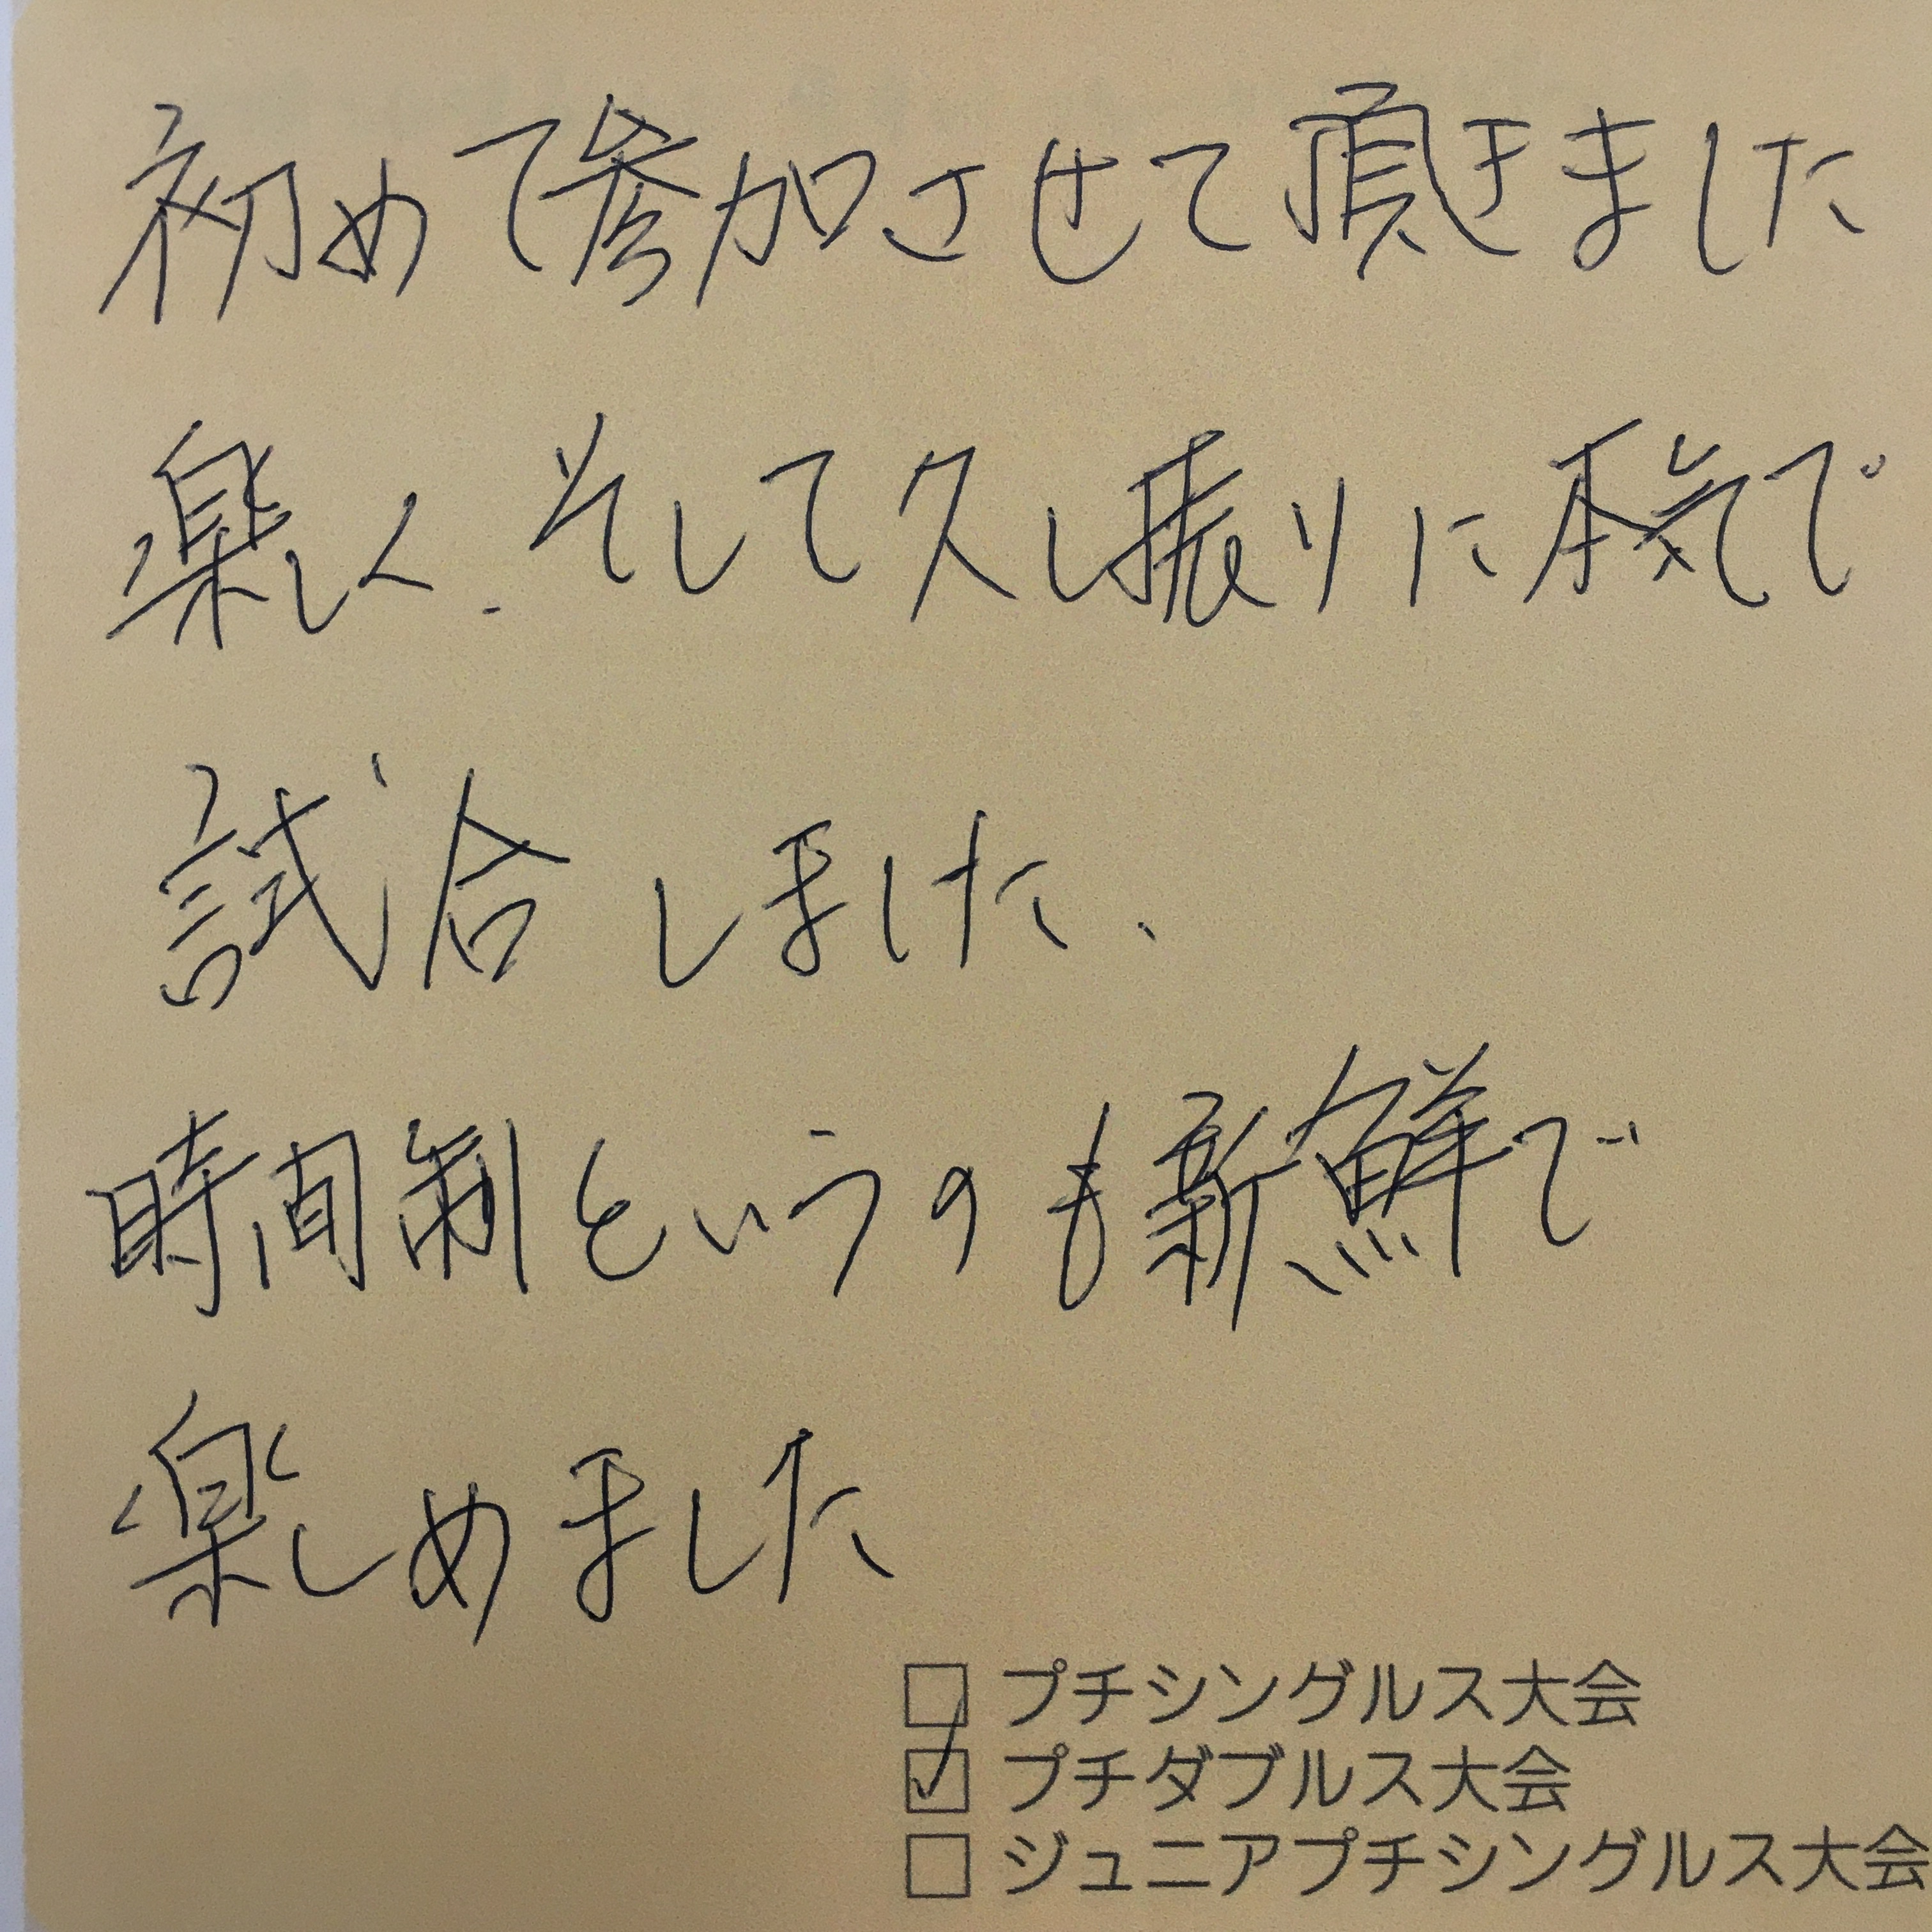 初めて参加させて頂きました
楽しく、そして久し振りに本気で
試合しました、
時間制というのも新鮮で
楽しめました
□ プチシングルス大会
☑ プチダブルス大会
□ ジュニアプチシングルス大会